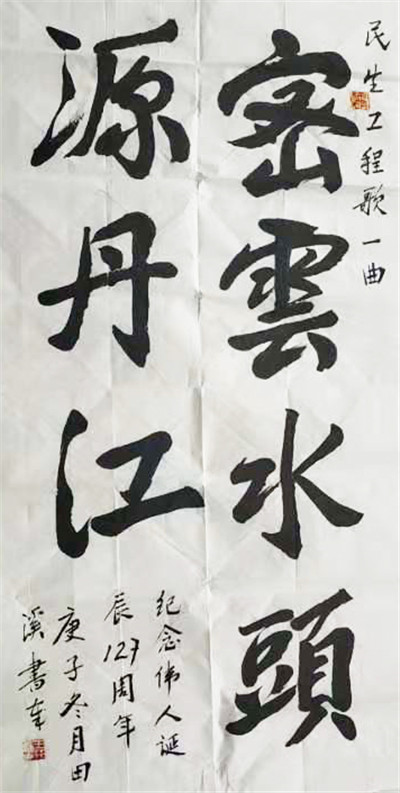 民生工程歌一曲
密雲水頭
源丹江
纪念伟人誕
辰127周年
庚子冬月田
溪書